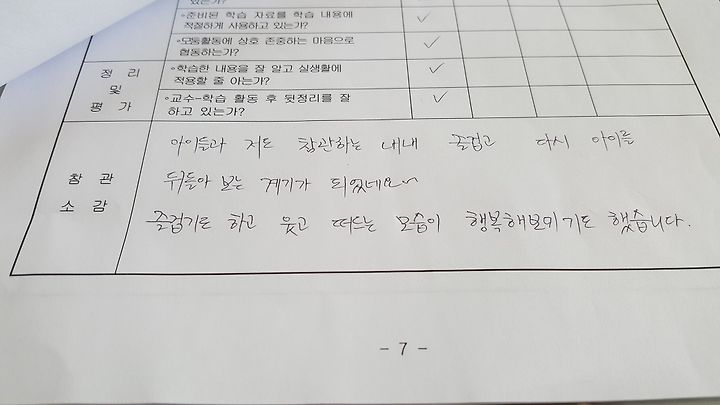 있는가?
◦준비된 학습 자료를 학습 내용에
적절하게 사용하고 있는가?
◦모둠활동에 상호 존중하는 마음으로
협동하는가?
정 리
및
평 가
◦학습한 내용을 잘 알고 실생활에
적용할 줄 아는가?
◦교수-학습 활동 후 뒷정리를 잘
하고 있는가?
참 관
소 감
아이들과 저도 참관하는 내내 즐겁고 다시 아이를
뒤돌아 보는 계기가 되었네요~
즐겁기도 하고 웃고 떠드는 모습이 행복해보이기도 했습니다.
- 7 -